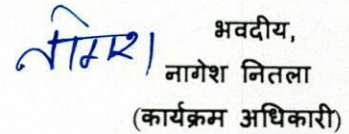 भवदीय,
नागेश नितला
(कार्यक्रम अधिकारी)